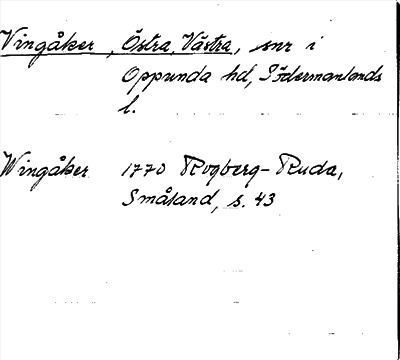 Vingåker, Östra, Västra, snr i
Oppunda hd, Södermanlands
l.
Wingåker 1770 Rogberg-Ruda,
Småland, s. 43